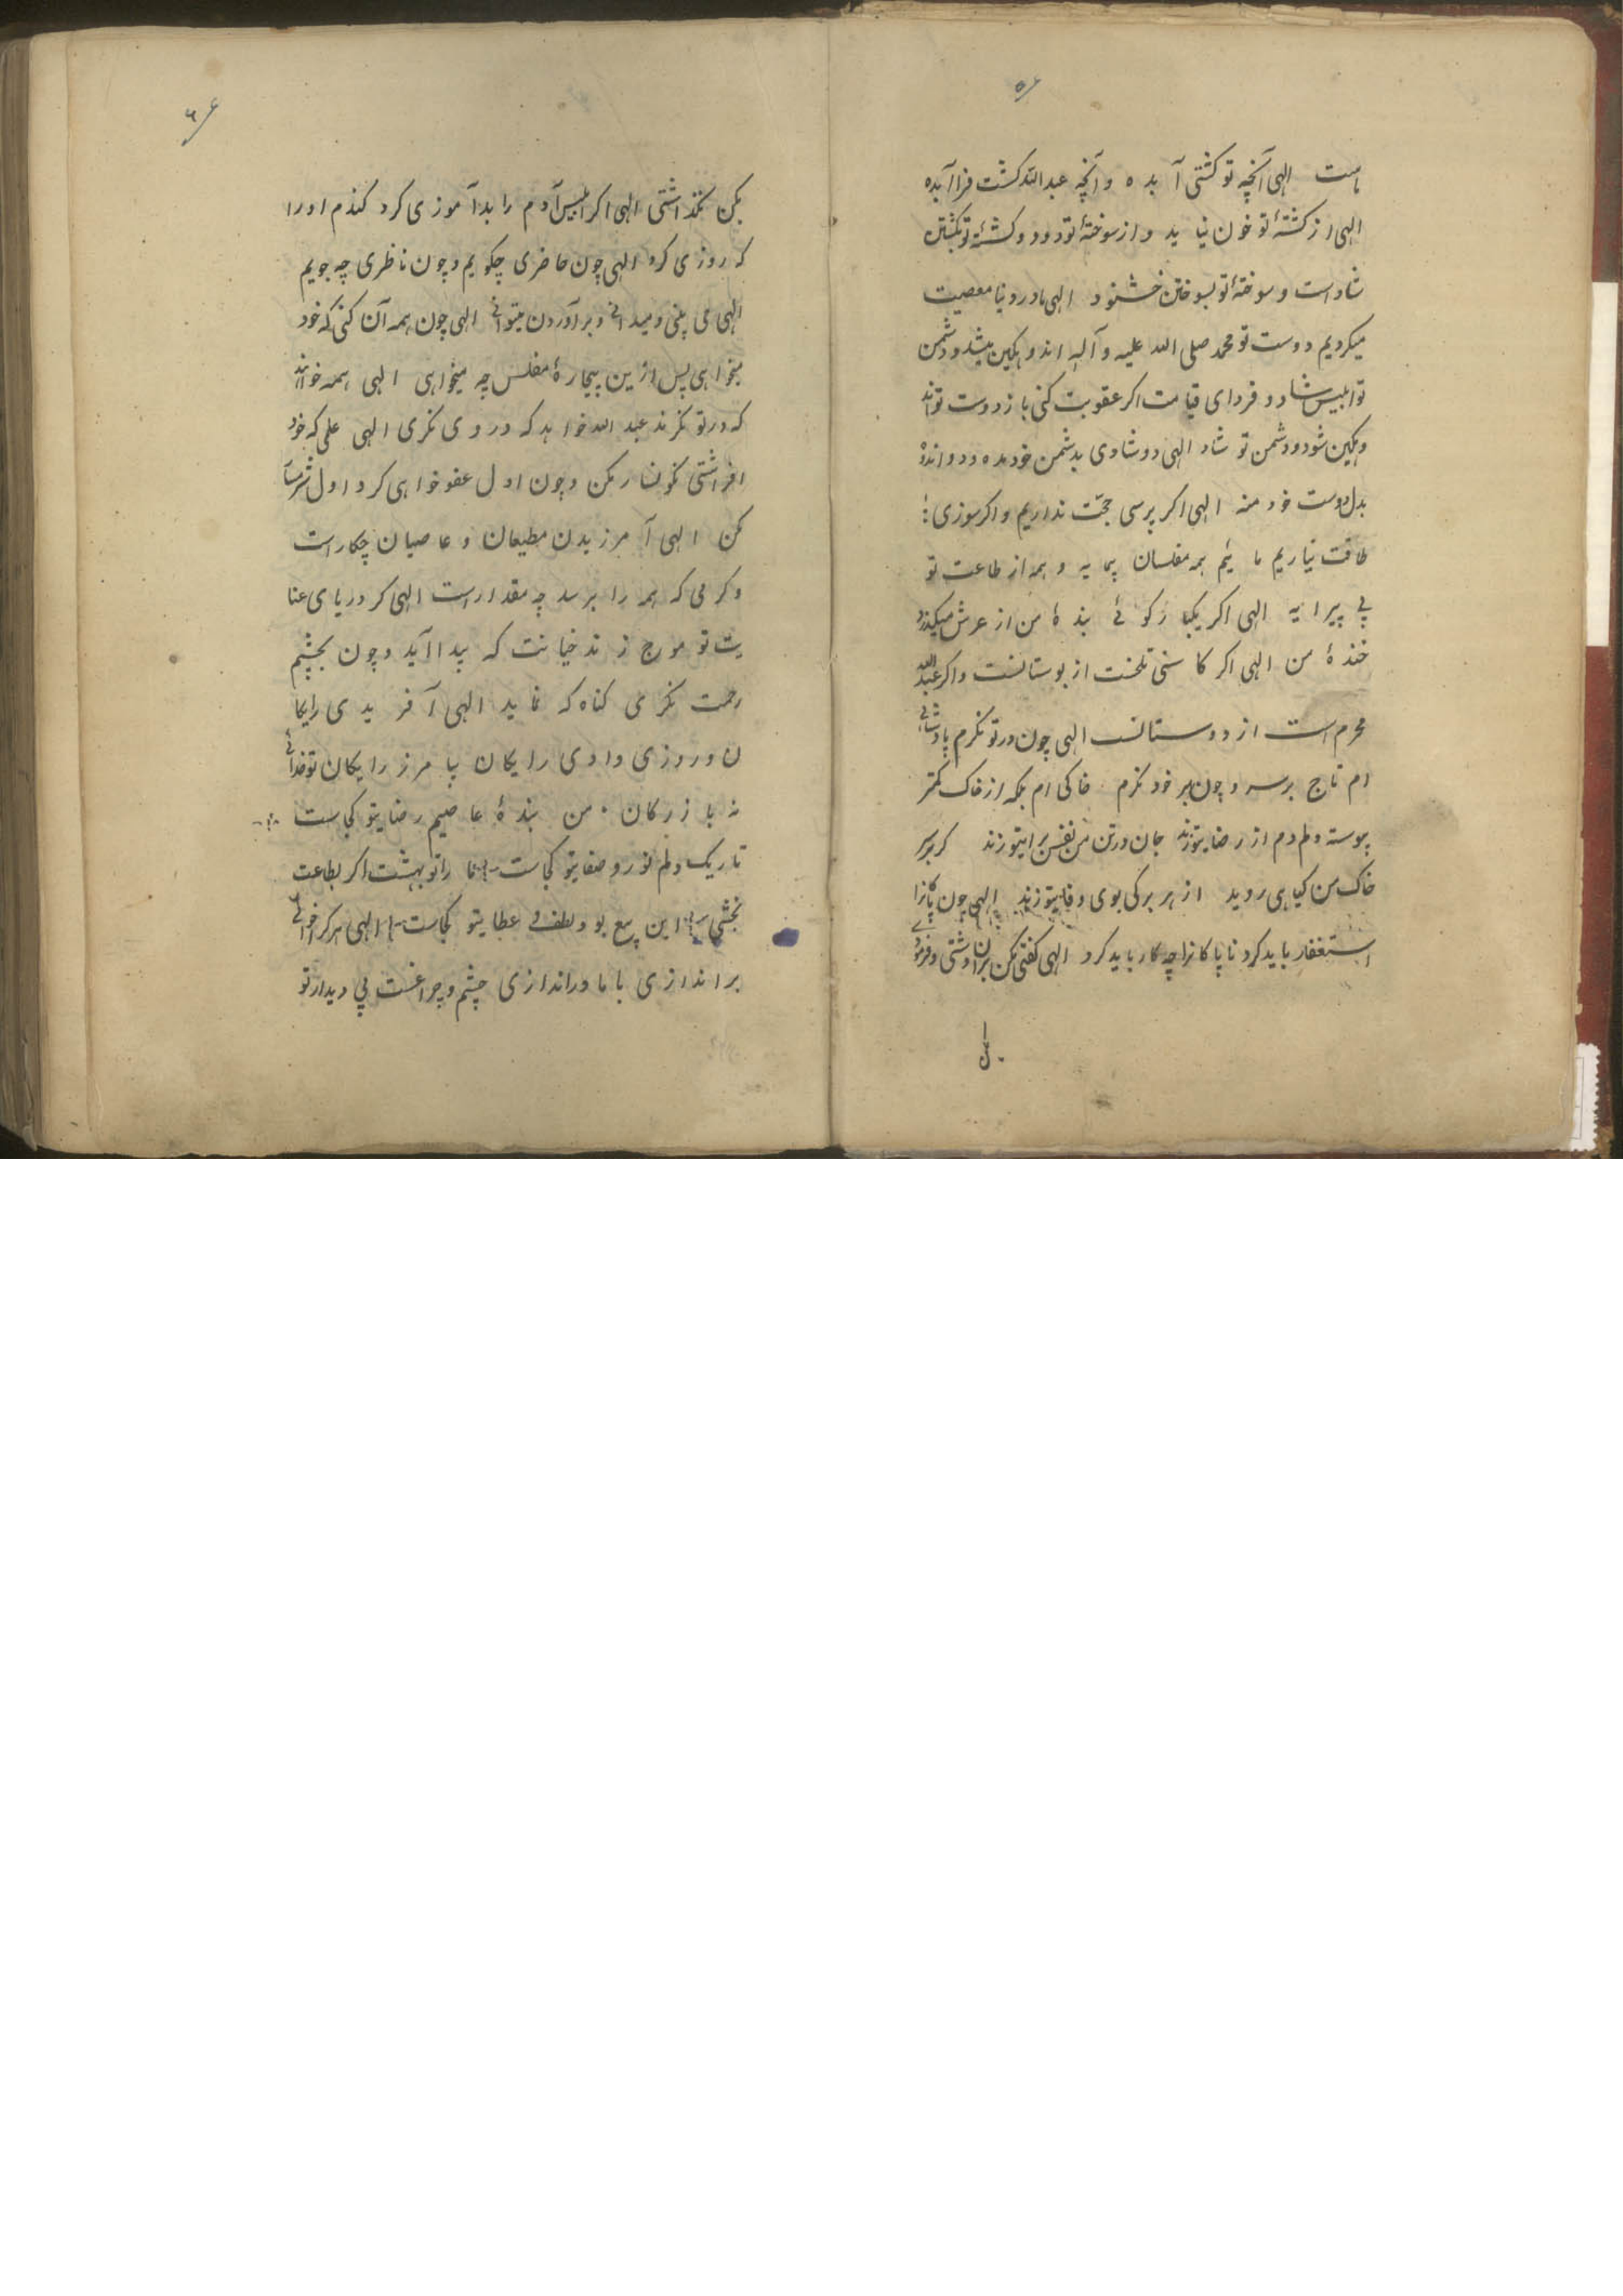 ۵
ماست الهی آنچه تو کشتی آب ده و آنچه عبدالله کشت فرا آب ده
الهی از کشتهٔ تو خون نیاید و از سوختهٔ تو دود و کشتهٔ تو بکشتن
شاد است و سوختهٔ تو بسوختن خشنود الهی ما در دنیا معصیت
میکردیم دوست تو محمد صلی الله علیه و آله اندوهکین میشد و دشمن
تو ابلیس شاد و فردای قیامت اکر عقوبت کنی باز دوست تو اند
وهکین شود و دشمن تو شاد الهی دو شادی بدشمن خود مده و دو اندوه
بدل دوست خود منه الهی اکر پرسی حجت نداریم و اکر سوزی
طاقت نیاریم مائیم همه مفلسان بیمایه و همه از طاعت تو
بی پیرایه الهی اکر یکبار کوئی بندهٔ من از عرش میکذرد
خندهٔ من الهی اکر کاسنی تلخست از بوستانست و اکر عبدالله
مجرم است از دوستانست الهی چون در تو نکرم پادشاهی
ام تاج بر سر و چون بر خود نکرم خاکی ام بلکه از خاک کمتر
پیوسته دلم دم از رضایتو زند جان در تن من نفس برایتو زند کر بر سر
خاک من کیاهی روید از هر برکی بوی وفایتو زند الهی چون پاکانرا
استغفار باید کرد ناپاکانرا چه کار باید کرد الهی کفتی مکن بران داشتی و فرمودی
۶
بکن نکذاشتی الهی اکر ابلیس آدم را بدآموزی کرد کندم او را
که روزی کرد الهی چون حاضری چکویم و چون ناظری چه جویم
الهی می بینی و میدانی و برآوردن میتوانی الهی چون همه آن کنی که خود
میخواهی پس ازین بیچارهٔ مفلس چه میخواهی الهی همه خواهند
که در تو نکرند عبدالله خواهد که در وی نکری الهی علمی که خود
افراشتی نکونسار مکن و چون اول عفو خواهی کرد اول شرمسار
مکن الهی آمرزیدن مطیعان و عاصیان چکار است
و کرمی که همه را برسد چه مقدار است الهی کر دریای عنا
یت تو موج زند خیانت که پیدا آید و چون بچشم
رحمت نکرمی کناه که نماید الهی آفریدی رایکا
ن و روزی دادی رایکان بیامرز رایکان تو خدائی
نه بازرکان من بندهٔ عاصیم رضایتو کجاست
تاریک دلم نور و صفایتو کجاست ما را تو بهشت اکر بطاعت
بخشی این بیع بود لطف و عطایتو کجاست الهی هر کرا خواهی
براندازی با ما دراندازی چشم و چراغست بی دیدار تو